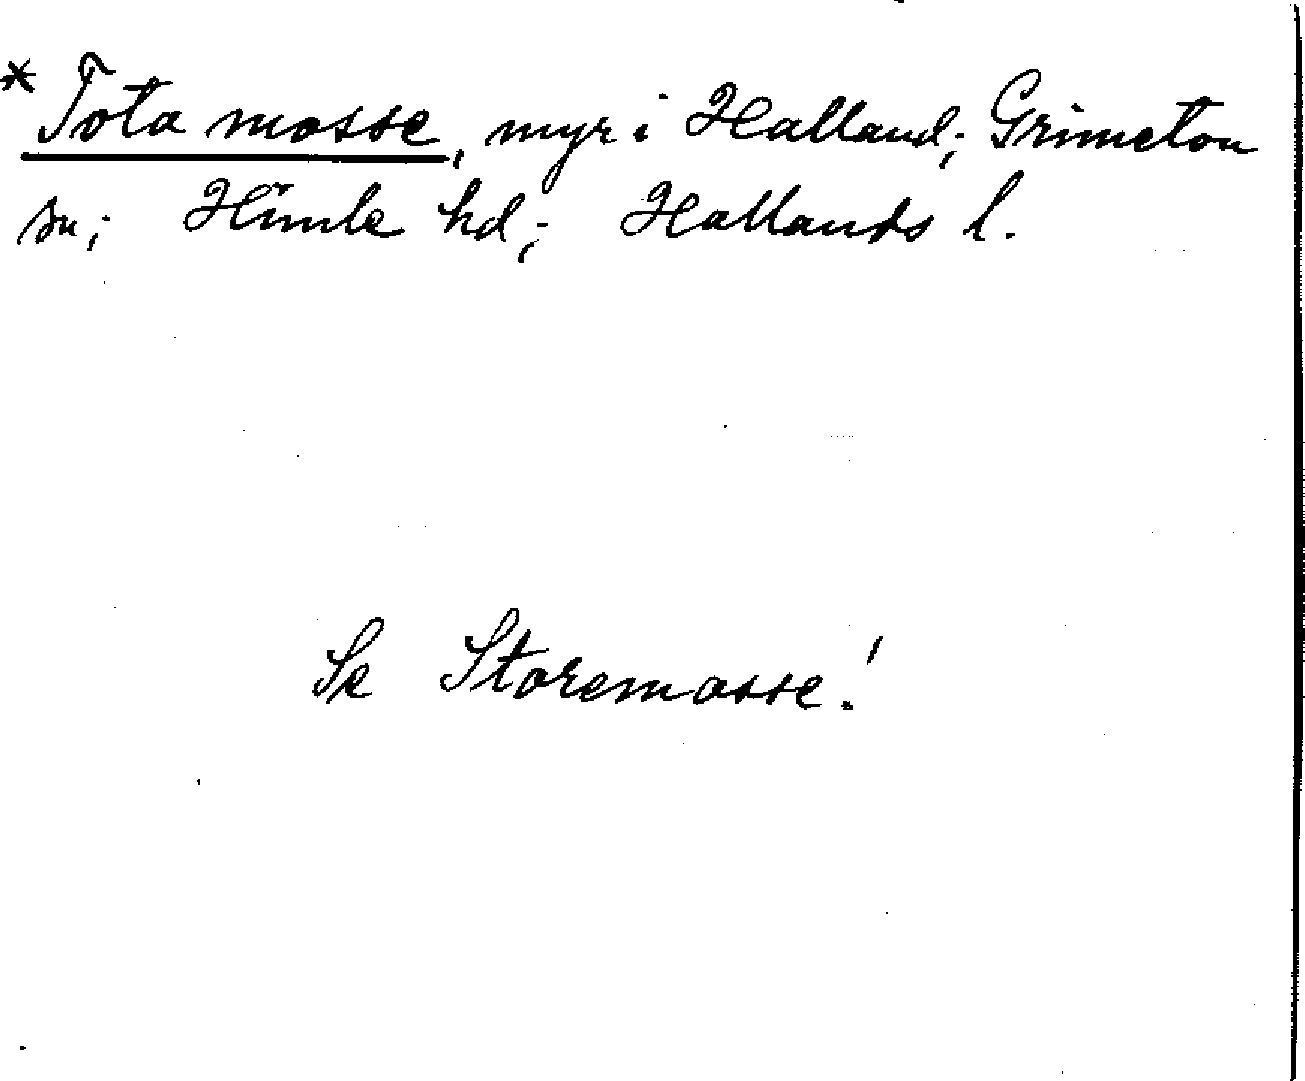 * Tota mosse, myr i Halland; Grimeton
sn; Himle hd; Hallands l.
Se Storemosse!